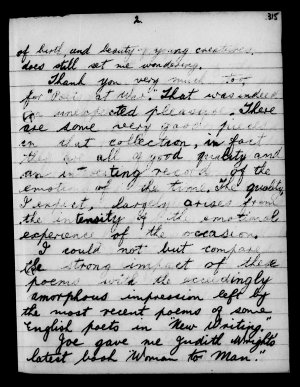 2. 315
of birth and beauty, young creatures,
does still set me wondering.
Thank you very much too
for "Poets at War". That was indeed
an unexpected pleasure. There
are some very good pieces
in that collection, in fact
they are all of good quality and
an interesting record of the
emotions of the time. The quality,
I expect, largely arises from
the intensity of the emotional
experience of the occasion.
I could not but compare
the strong impact of these
poems with the exceedingly
amorphous impression left by
the most recent poems of some
English poets in "New Writing."
Joe gave me Judith Wright's
latest book "Woman to Man."